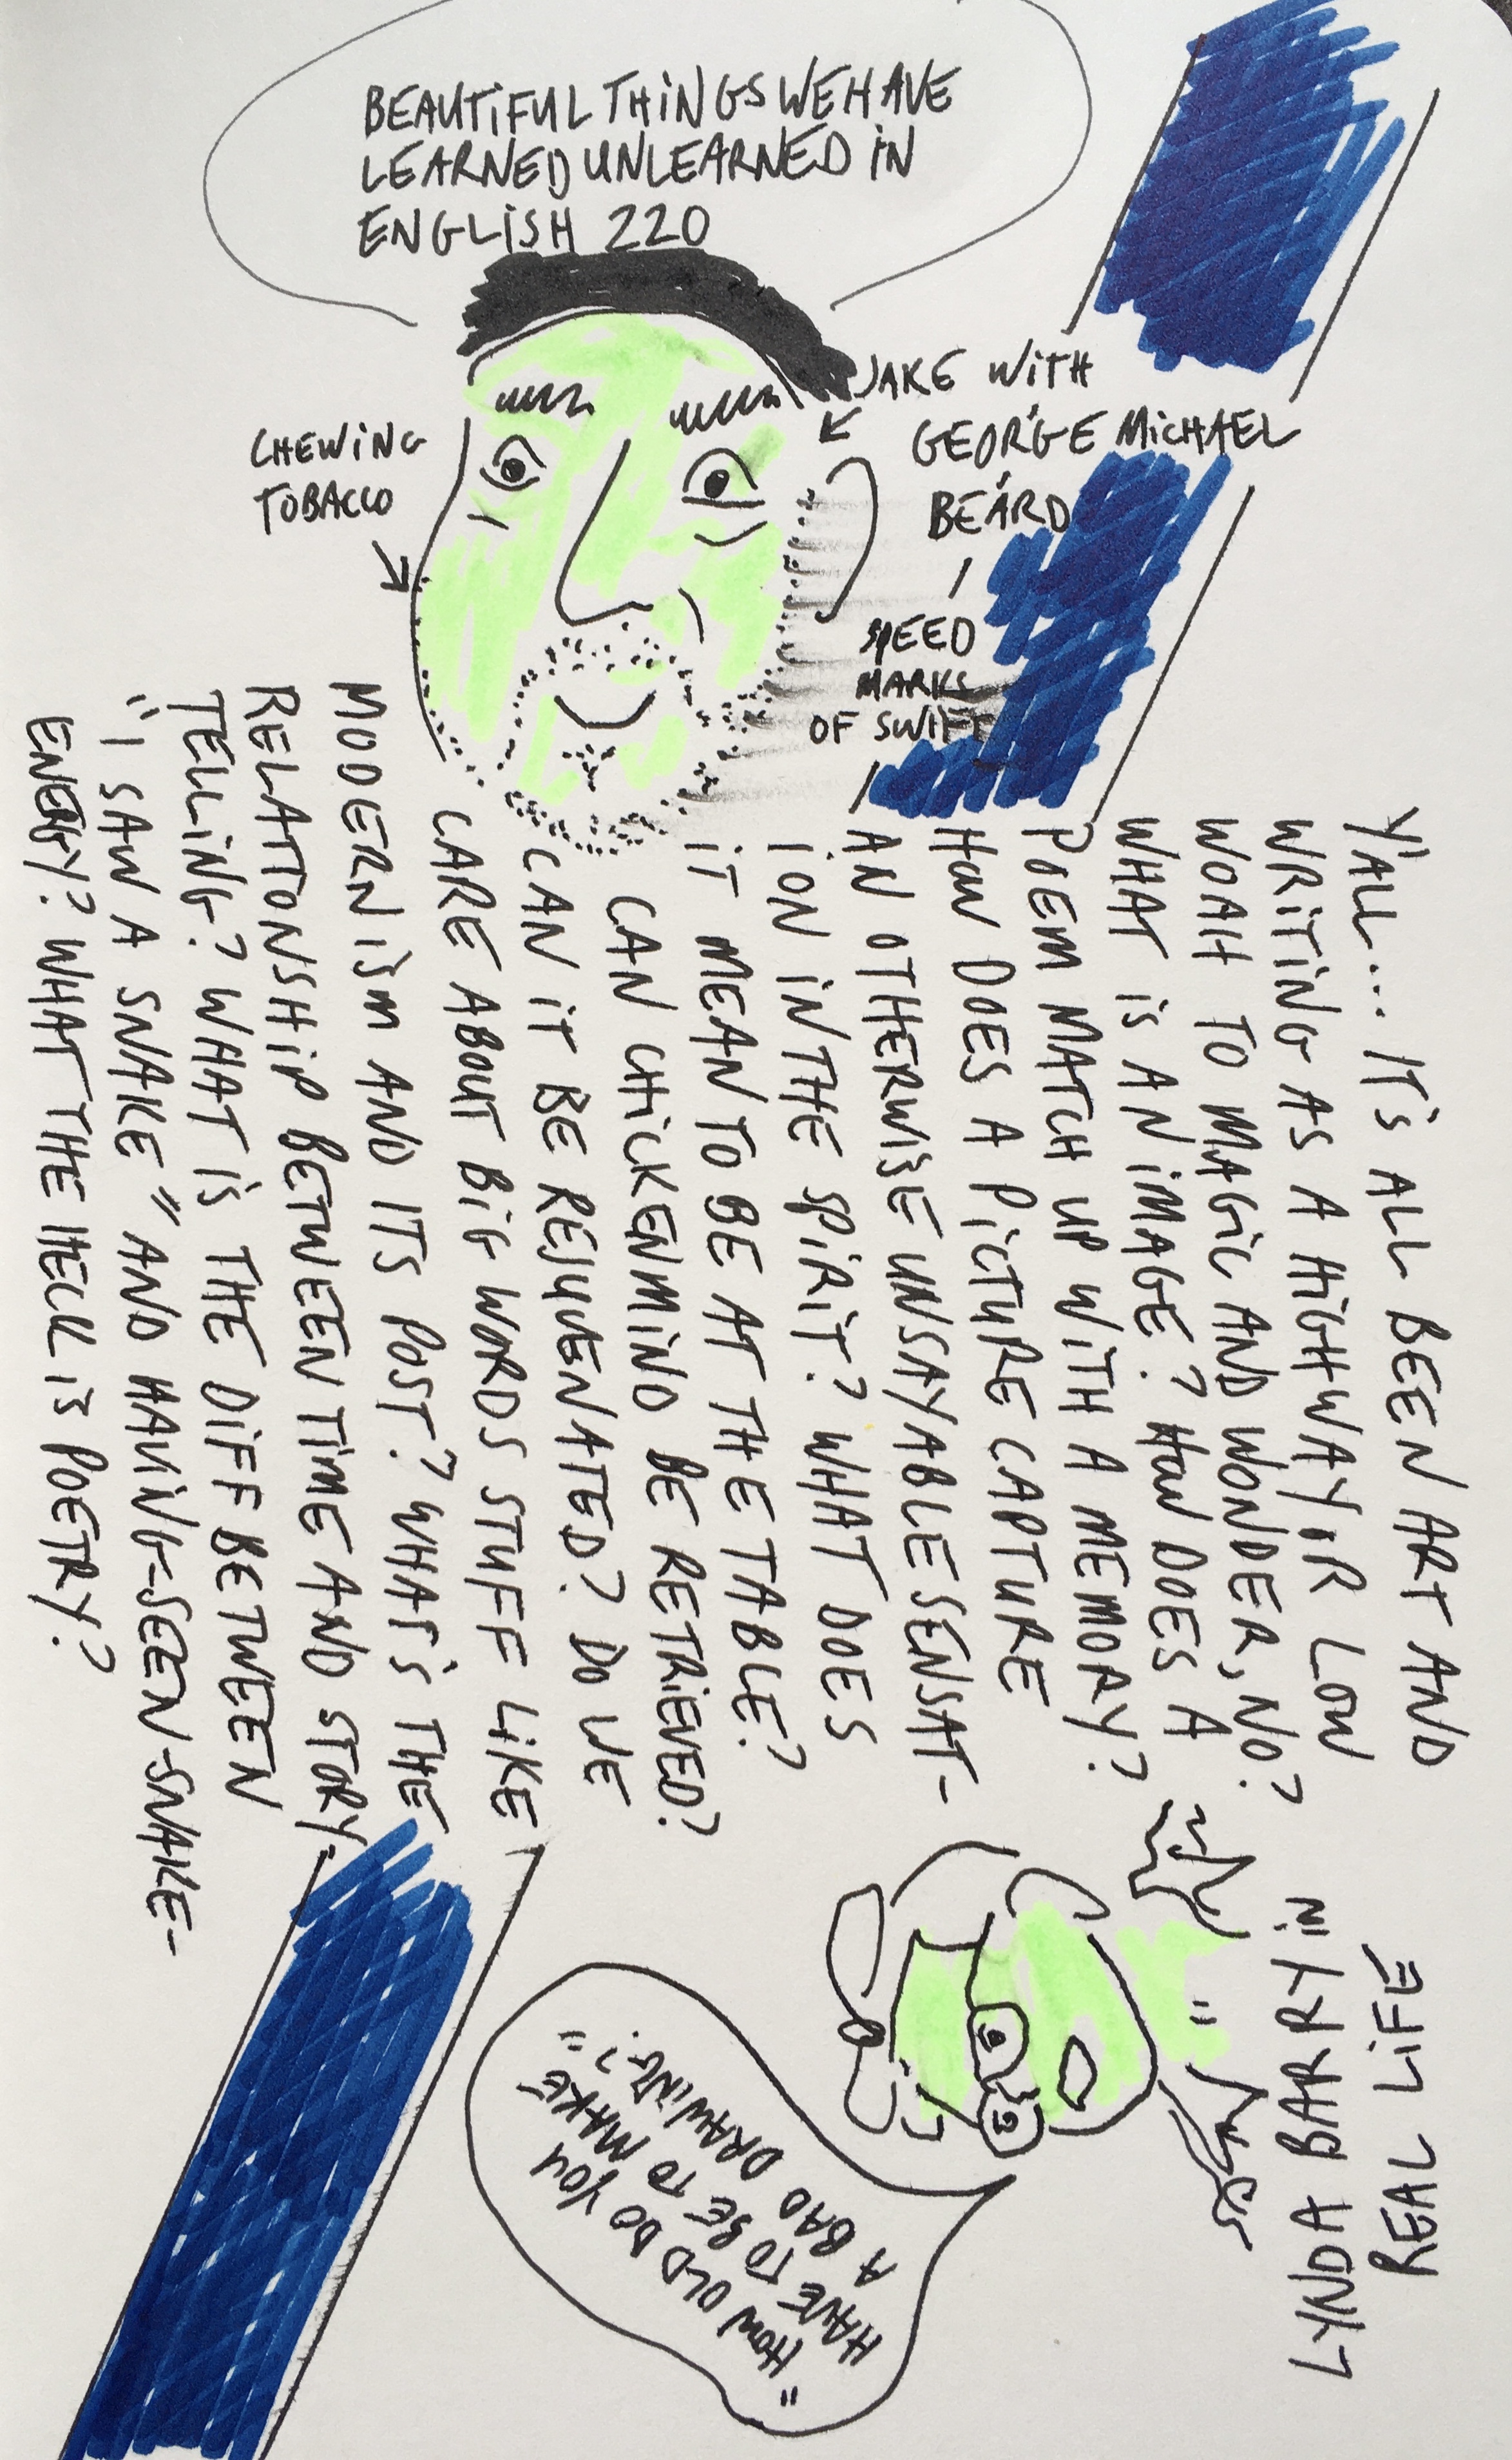 BEAUTIFUL THINGS WE HAVE
LEARNED UNLEARNED IN
ENGLISH 220
CHEWING
TOBACCO
JAKE WITH
GEORGE MICHAEL
BEARD
SPEED
MARKS
OF SWIFT
Y'ALL... IT'S ALL BEEN ART AND
WRITING AS A HIGHWAY IR LOW
WOAH TO MAGIC AND WONDER, NO?
WHAT IS AN IMAGE? HOW DOES A
POEM MATCH UP WITH A MEMORY?
HOW DOES A PICTURE CAPTURE
AN OTHERWISE UNSAYABLE SENSAT-
ION IN THE SPIRIT? WHAT DOES
IT MEAN TO BE AT THE TABLE?
CAN CHICKENMIND BE RETRIEVED?
CAN IT BE REJUVENATED? DO WE
CARE ABOUT BIG WORDS STUFF LIKE
MODERNISM AND ITS POST? WHAT'S THE
RELATIONSHIP BETWEEN TIME AND STORY-
TELLING? WHAT IS THE DIFF BETWEEN
"I SAW A SNAKE" AND HAVING-SEEN-SNAKE-
ENERGY? WHAT THE HECK IS POETRY?
LYNDA BARRY IN
REAL LIFE
"HOW OLD DO YOU
HAVE TO BE TO MAKE
A BAD DRAWING?"